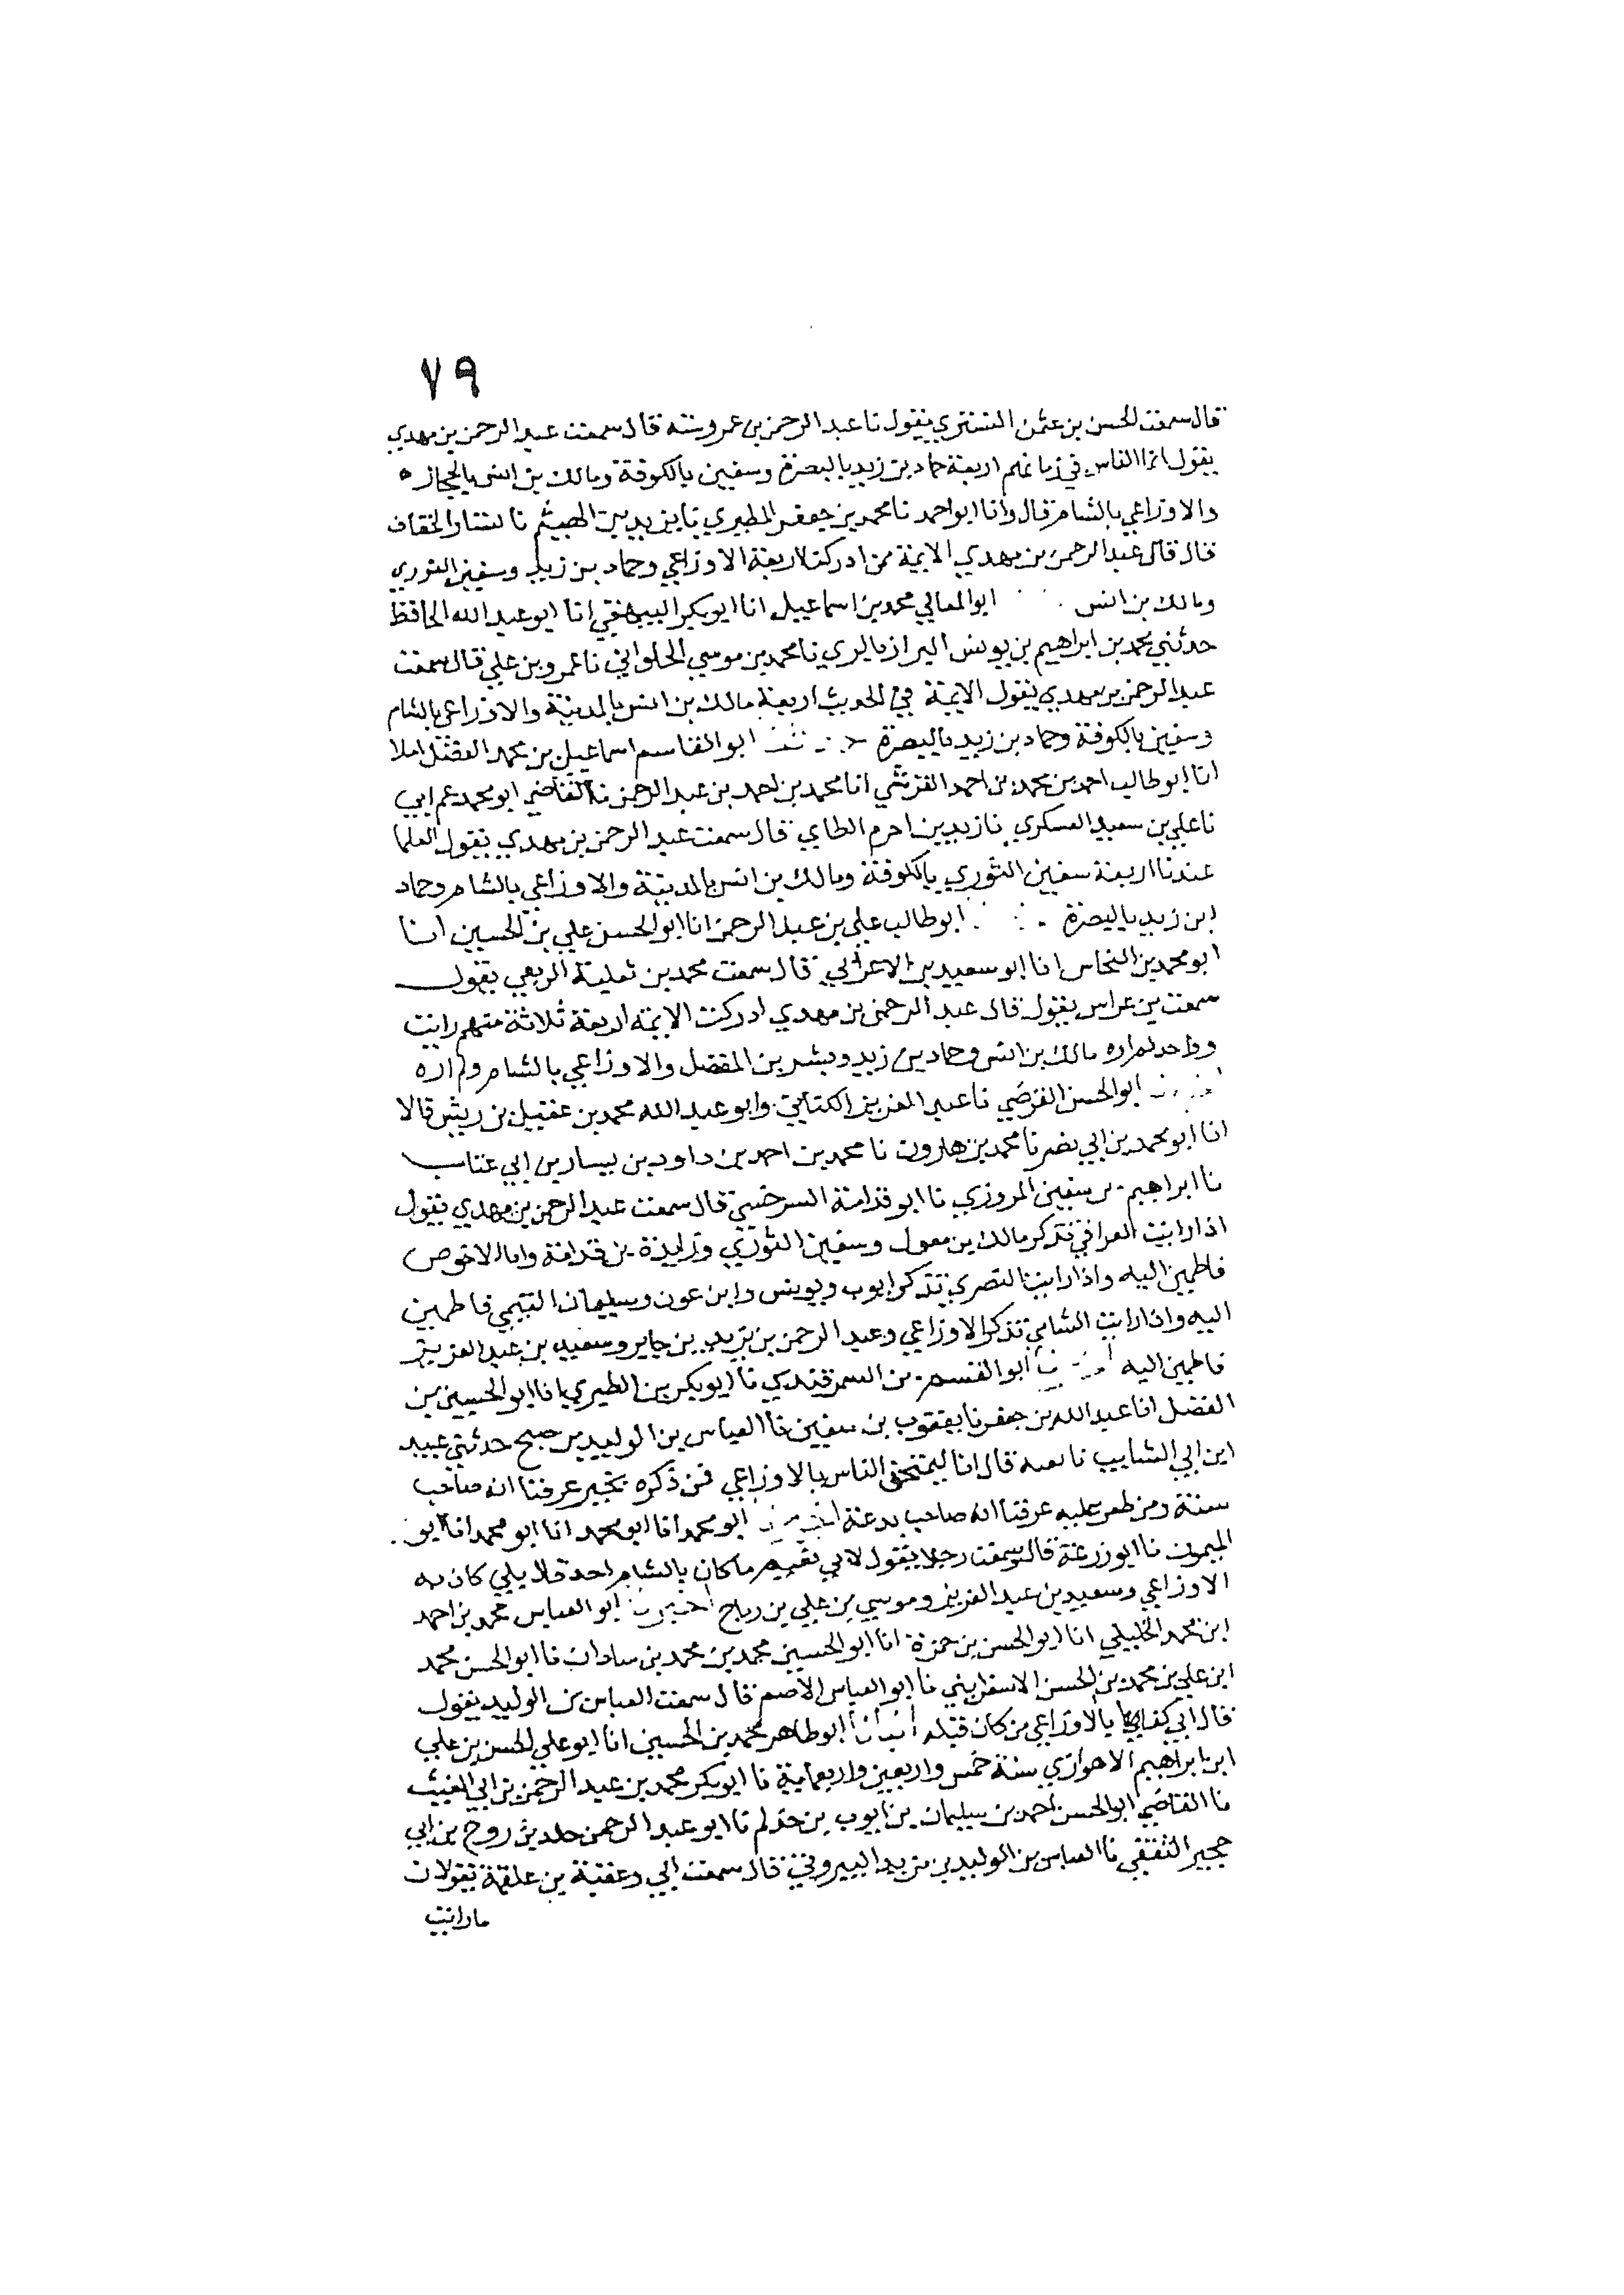 ٧٩
قال سمعت الحسن بن عثمن التستري يقول نا عبد الرحمن بن عمر رسته قال سمعت عبد الرحمن بن مهدي
يقول ائمة الناس في زمانهم اربعة حماد بن زيد بالبصرة وسفين بالكوفة ومالك بن انس بالحجاز
والاوزاعي بالشام قال وانا ابو احمد نا محمد بن جعفر المطيري نا يزيد بن الهيثم نا الخفاف
قال قال عبد الرحمن بن مهدي الايمة من ادركت اربعة الاوزاعي وحماد بن زيد وسفين الثوري
ومالك بن انس ابو المعالي محمد بن اسماعيل انا ابو بكر البيهقي انا ابو عبد الله الحافظ
حدثني محمد بن ابراهيم بن يونس البزاز بالري نا محمد بن موسي الحلواني نا عمرو بن علي قال سمعت
عبد الرحمن بن مهدي يقول الايمة في الحديث اربعة مالك بن انس بالمدينة والاوزاعي بالشام
وسفين بالكوفة وحماد بن زيد بالبصرة ابو القاسم اسماعيل بن محمد الفضل املا
انا ابو طالب احمد بن محمد بن احمد القرشي انا محمد بن احمد بن عبد الرحمن نا القاضي ابو محمد عم ابي
نا علي بن سعيد العسكري نا زيد بن اخرم الطاي قال سمعت عبد الرحمن بن مهدي يقول العلما
عندنا اربعة سفين الثوري بالكوفة ومالك بن انس بالمدينة والاوزاعي بالشام وحماد
ابن زيد بالبصرة ابو طالب علي بن عبد الرحمن انا ابو الحسن علي بن الحسين انا
ابو محمد بن النحاس انا ابو سعيد بن الاعرابي قال سمعت محمد بن ثعلبة الربعي يقول
سمعت بن عراس يقول قال عبد الرحمن بن مهدي ادركت الايمة اربعة ثلاثة منهم رايت
وواحد لم اره مالك بن انس وحماد بن زيد وبشر بن المفضل والاوزاعي بالشام ولم اره
ابو الحسن الفرضي نا عبد العزيز الكتاني وابو عبد الله محمد بن عقيل بن ريش قالا
انا ابو محمد بن ابي نصر نا محمد بن هارون نا محمد بن احمد بن داود بن يسار بن ابي عتاب
نا ابراهيم بن سفين المروزي نا ابو قدامة السرخسي قال سمعت عبد الرحمن بن مهدي يقول
اذا رايت العراقي تذكر مالك بن مغول وسفين الثوري وزايدة بن قدامة وابا الاحوص
فاطمين اليه واذا رايت البصري تذكر ايوب ويونس وابن عون وسليمان التيمي فاطمين
اليه واذا رايت الشامي تذكر الاوزاعي وعبد الرحمن بن يزيد بن جابر وسعيد بن عبد العزيز
فاطمين اليه ابو القسم بن السمرقندي نا ابو بكر بن الطبري انا ابو الحسين بن
الفضل انا عبد الله بن جعفر نا يعقوب بن سفين نا العباس بن الوليد بن صبح حدثني عبيد
ابن ابي السايب نا بقية قال انا ليمتحن الناس بالاوزاعي فمن ذكره بخير عرفنا انه صاحب
سنة ومن طعن عليه عرفنا انه صاحب بدعة ابو محمد انا ابو محمد انا ابو محمد انا ابو
الميمون نا ابو زرعة قال سمعت رجلا يقول لابي نعيم ما كان بالشام احد قال بلي كان به
الاوزاعي وسعيد بن عبد العزيز وموسي بن علي بن رباح اخبرنا ابو العباس محمد بن احمد
ابن محمد الخليلي انا ابو الحسن بن حمزة انا ابو الحسين محمد بن محمد بن سادان نا ابو الحسن محمد
ابن علي بن محمد بن الحسن الاسفرايني نا ابو العباس الاصم قال سمعت العباس بن الوليد يقول
قال ابي كفايها بالاوزاعي من كان قبله انبانا ابو طاهر محمد بن الحسين انا ابو علي الحسن بن علي
ابن ابراهيم الاهوازي سنة خمس واربعين واربعماية نا ابو بكر محمد بن عبد الرحمن بن ابي الغيث
نا القاضي ابو الحسن احمد بن سليمان بن ايوب بن حذلم نا ابو عبد الرحمن خلد بن روح بن ابي
حجير الثقفي نا العباس بن الوليد بن مزيد البيروتي قال سمعت ابي وعقبة بن علقمة يقولان
ما رايت